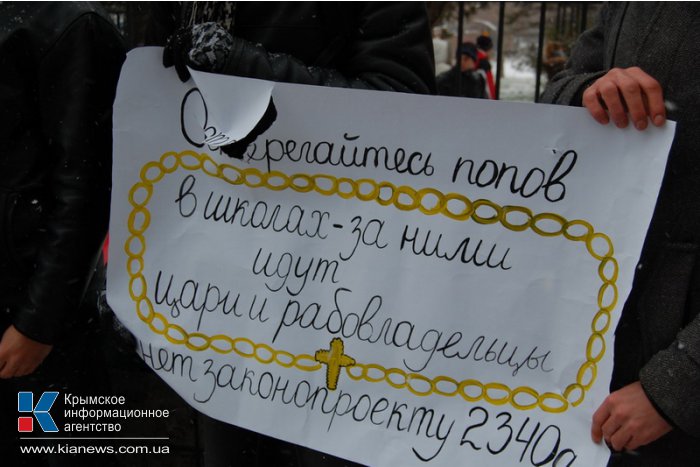 Остерегайтесь попов
в школах-за ними
идут
цари и рабовладельцы
нет законопроекту 2340а
Крымское
информационное
агентство
www.kianews.com.ua